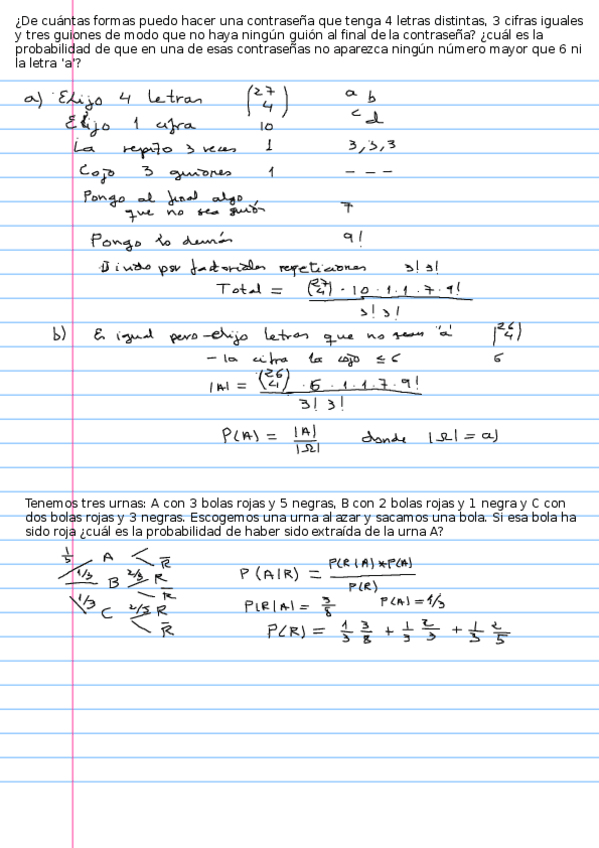 ¿De cuántas formas puedo hacer una contraseña que tenga 4 letras distintas, 3 cifras iguales
y tres guiones de modo que no haya ningún guión al final de la contraseña? ¿cuál es la
probabilidad de que en una de esas contraseñas no aparezca ningún número mayor que 6 ni
la letra 'a'?
a) Elijo 4 letras (27 4) a b
c d
Elijo 1 cifra 10
La repito 3 veces 1 3,3,3
Cojo 3 guiones 1 - - -
Pongo al final algo
que no sea guión 7
Pongo lo demás 9!
Divido por factoriales repeticiones 3! 3!
Total = (27 4) · 10 · 1 · 1 · 7 · 9! / 3! 3!
b) Es igual pero - elijo letras que no sean 'a' (26 4)
- la cifra la cojo ≤ 6 6
|A| = (26 4) · 6 · 1 · 1 · 7 · 9! / 3! 3!
P(A) = |A| / |Ω| donde |Ω| = a)
Tenemos tres urnas: A con 3 bolas rojas y 5 negras, B con 2 bolas rojas y 1 negra y C con
dos bolas rojas y 3 negras. Escogemos una urna al azar y sacamos una bola. Si esa bola ha
sido roja ¿cuál es la probabilidad de haber sido extraída de la urna A?
A R̄
1/3 B 2/3 R
R̄
1/3 C 2/5 R
R̄
P(A|R) = P(R|A)*P(A) / P(R)
P(R|A) = 3/8 P(A) = 1/3
P(R) = 1/3 3/8 + 1/3 2/3 + 1/3 2/5